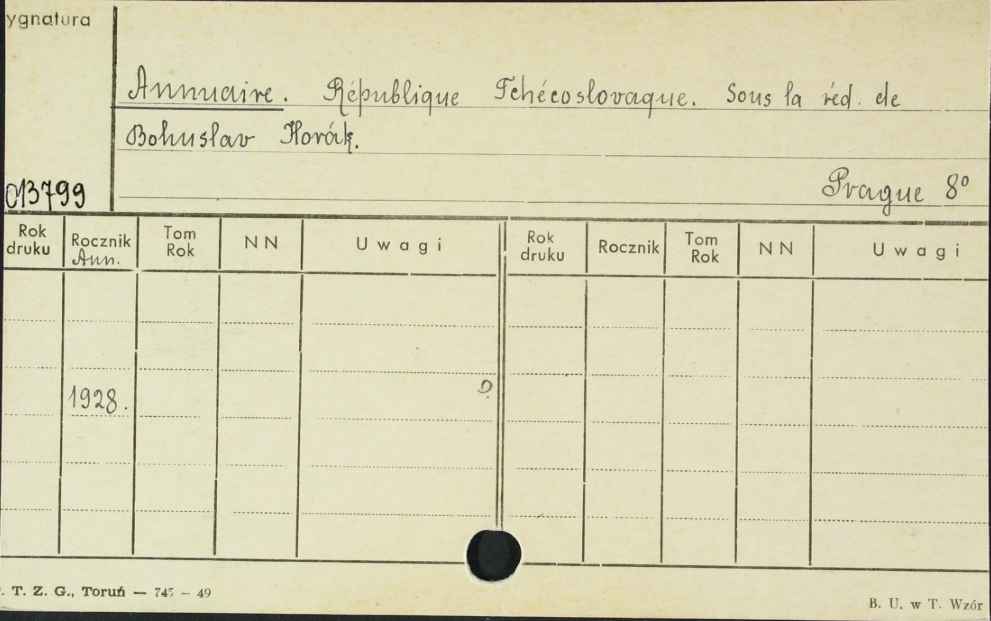 ygnatura
Annuaire. République Tchécoslovaque. Sous la réd. de
Bohuslav Horák.
013799
Prague 8°
Rok druku Rocznik Ann. Tom Rok NN Uwagi Rok druku Rocznik Tom Rok NN Uwagi
1928. D.
. T. Z. G., Toruń — 745 — 49
B. U. w T. Wzór